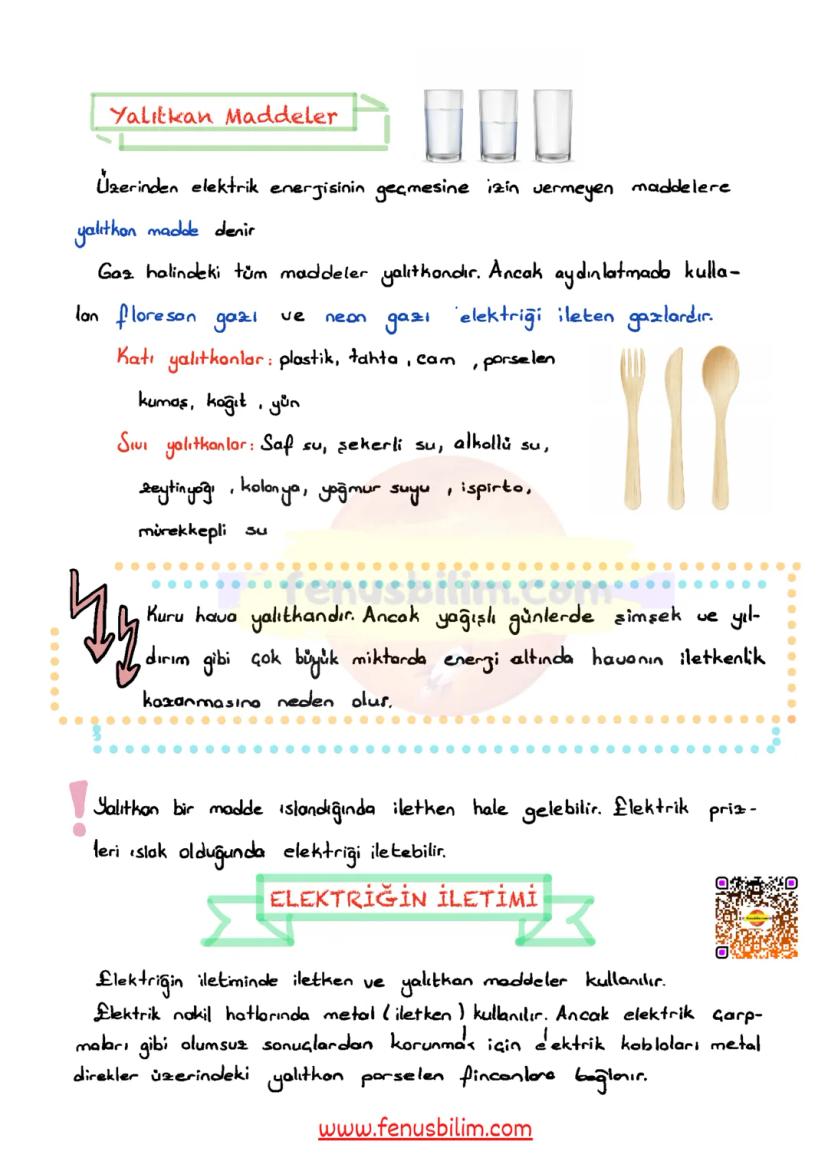 Yalıtkan Maddeler
Üzerinden elektrik energisinin geçmesine izin vermeyen maddelere
yalıtkan madde denir
Gaz halindeki tüm maddeler yalıtkandır. Ancak aydınlatmada kulla-
lan floresan gazı ve neon gazı elektriği ileten gazlardır.
Katı yalıtkanlar: plastik, tahta, cam, porselen
kumaş, kağıt, yün
Sıvı yalıtkanlar: Saf su, şekerli su, alkollü su,
zeytinyağı, kolonya, yağmur suyu, ispirto,
mürekkepli su
fenusbilim.com
Kuru hava yalıtkandır. Ancak yağışlı günlerde şimşek ve yıl-
dırım gibi çok büyük miktarda energi altında havanın iletkenlik
kazanmasına neden olur.
! Yalıtkan bir madde ıslandığında iletken hale gelebilir. Elektrik priz-
leri ıslak olduğunda elektriği iletebilir.
ELEKTRİĞİN İLETİMİ
Elektriğin iletiminde iletken ve yalıtkan maddeler kullanılır.
Elektrik nakil hatlarında metal (iletken) kullanılır. Ancak elektrik çarp-
maları gibi olumsuz sonuçlardan korunmak için elektrik kabloları metal
direkler üzerindeki yalıtkan porselen fincanlara bağlanır.
www.fenusbilim.com